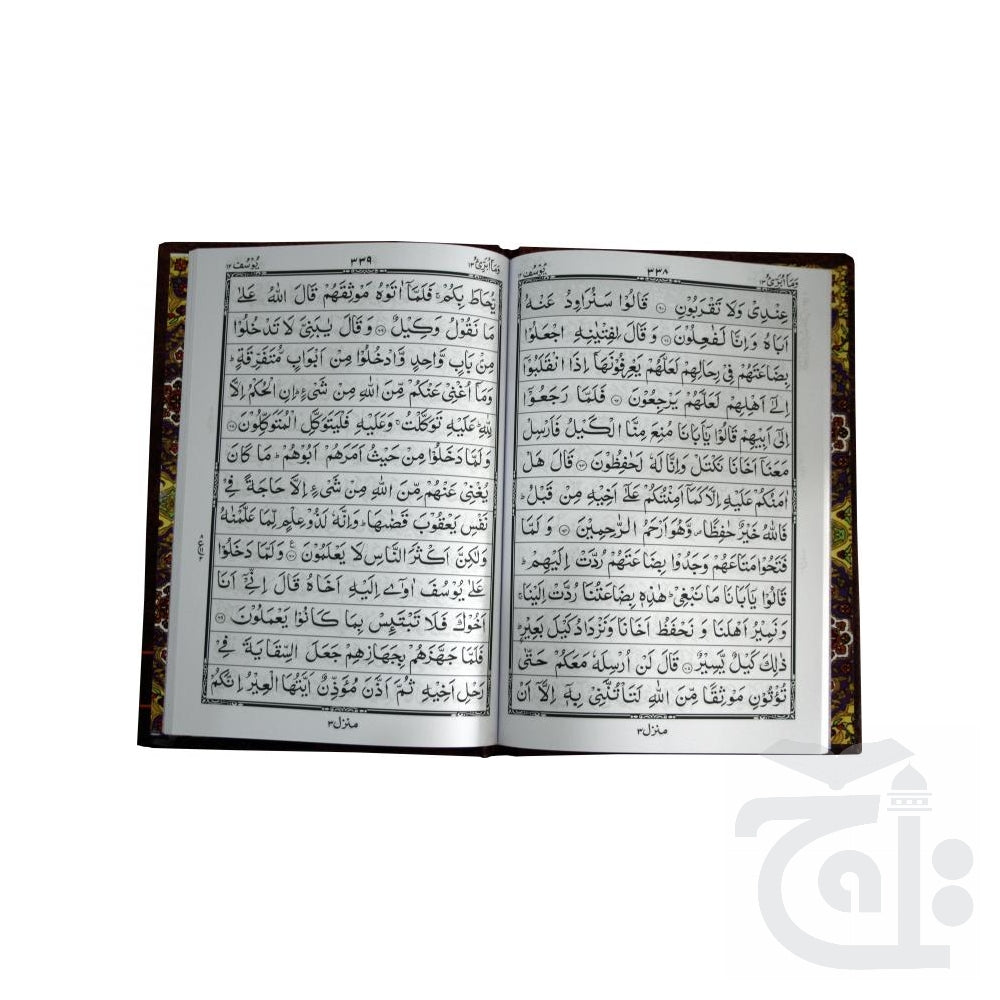 وَمَاۤ اُبَرِّئُ ۱۳ ۳۳۸ یُوْسُف ۱۲
عِنْدِیْ وَلَا تَقْرَبُوْنِ ﴿۶۰﴾ قَالُوْا سَنُرَاوِدُ عَنْهُ
اَبَاهُ وَاِنَّا لَفٰعِلُوْنَ ﴿۶۱﴾ وَقَالَ لِفِتْیٰنِهِ اجْعَلُوْا
بِضَاعَتَهُمْ فِیْ رِحَالِهِمْ لَعَلَّهُمْ یَعْرِفُوْنَهَاۤ اِذَا انْقَلَبُوْۤا
اِلٰۤی اَهْلِهِمْ لَعَلَّهُمْ یَرْجِعُوْنَ ﴿۶۲﴾ فَلَمَّا رَجَعُوْۤا
اِلٰۤی اَبِیْهِمْ قَالُوْا یٰۤاَبَانَا مُنِعَ مِنَّا الْكَیْلُ فَاَرْسِلْ
مَعَنَاۤ اَخَانَا نَكْتَلْ وَاِنَّا لَهٗ لَحٰفِظُوْنَ ﴿۶۳﴾ قَالَ هَلْ
اٰمَنُكُمْ عَلَیْهِ اِلَّا كَمَاۤ اَمِنْتُكُمْ عَلٰۤی اَخِیْهِ مِنْ قَبْلُ ؕ
فَاللّٰهُ خَیْرٌ حٰفِظًا ۪ وَّهُوَ اَرْحَمُ الرّٰحِمِیْنَ ﴿۶۴﴾ وَلَمَّا
فَتَحُوْا مَتَاعَهُمْ وَجَدُوْا بِضَاعَتَهُمْ رُدَّتْ اِلَیْهِمْ ؕ
قَالُوْا یٰۤاَبَانَا مَا نَبْغِیْ ؕ هٰذِهٖ بِضَاعَتُنَا رُدَّتْ اِلَیْنَا ۚ
وَنَمِیْرُ اَهْلَنَا وَ نَحْفَظُ اَخَانَا وَنَزْدَادُ كَیْلَ بَعِیْرٍ ؕ
ذٰلِكَ كَیْلٌ یَّسِیْرٌ ﴿۶۵﴾ قَالَ لَنْ اُرْسِلَهٗ مَعَكُمْ حَتّٰی
تُؤْتُوْنِ مَوْثِقًا مِّنَ اللّٰهِ لَتَاْتُنَّنِیْ بِهٖۤ اِلَّاۤ اَنْ
منزل ۳
وَمَاۤ اُبَرِّئُ ۱۳ ۳۳۹ یُوْسُف ۱۲
یُّحَاطَ بِكُمْ ۚ فَلَمَّاۤ اٰتَوْهُ مَوْثِقَهُمْ قَالَ اللّٰهُ عَلٰی
مَا نَقُوْلُ وَكِیْلٌ ﴿۶۶﴾ وَقَالَ یٰبَنِیَّ لَا تَدْخُلُوْا
مِنْۢ بَابٍ وَّاحِدٍ وَّادْخُلُوْا مِنْ اَبْوَابٍ مُّتَفَرِّقَةٍ ؕ
وَمَاۤ اُغْنِیْ عَنْكُمْ مِّنَ اللّٰهِ مِنْ شَیْءٍ ؕ اِنِ الْحُكْمُ اِلَّا
لِلّٰهِ ؕ عَلَیْهِ تَوَكَّلْتُ ۚ وَعَلَیْهِ فَلْیَتَوَكَّلِ الْمُتَوَكِّلُوْنَ ﴿۶۷﴾
وَلَمَّا دَخَلُوْا مِنْ حَیْثُ اَمَرَهُمْ اَبُوْهُمْ ؕ مَا كَانَ
یُغْنِیْ عَنْهُمْ مِّنَ اللّٰهِ مِنْ شَیْءٍ اِلَّا حَاجَةً فِیْ
نَفْسِ یَعْقُوْبَ قَضٰىهَا ؕ وَاِنَّهٗ لَذُوْ عِلْمٍ لِّمَا عَلَّمْنٰهُ
وَلٰكِنَّ اَكْثَرَ النَّاسِ لَا یَعْلَمُوْنَ ﴿۶۸﴾ وَلَمَّا دَخَلُوْا
عَلٰی یُوْسُفَ اٰوٰۤی اِلَیْهِ اَخَاهُ قَالَ اِنِّیْۤ اَنَا
اَخُوْكَ فَلَا تَبْتَىِٕسْ بِمَا كَانُوْا یَعْمَلُوْنَ ﴿۶۹﴾
فَلَمَّا جَهَّزَهُمْ بِجَهَازِهِمْ جَعَلَ السِّقَایَةَ فِیْ
رَحْلِ اَخِیْهِ ثُمَّ اَذَّنَ مُؤَذِّنٌ اَیَّتُهَا الْعِیْرُ اِنَّكُمْ
منزل ۳